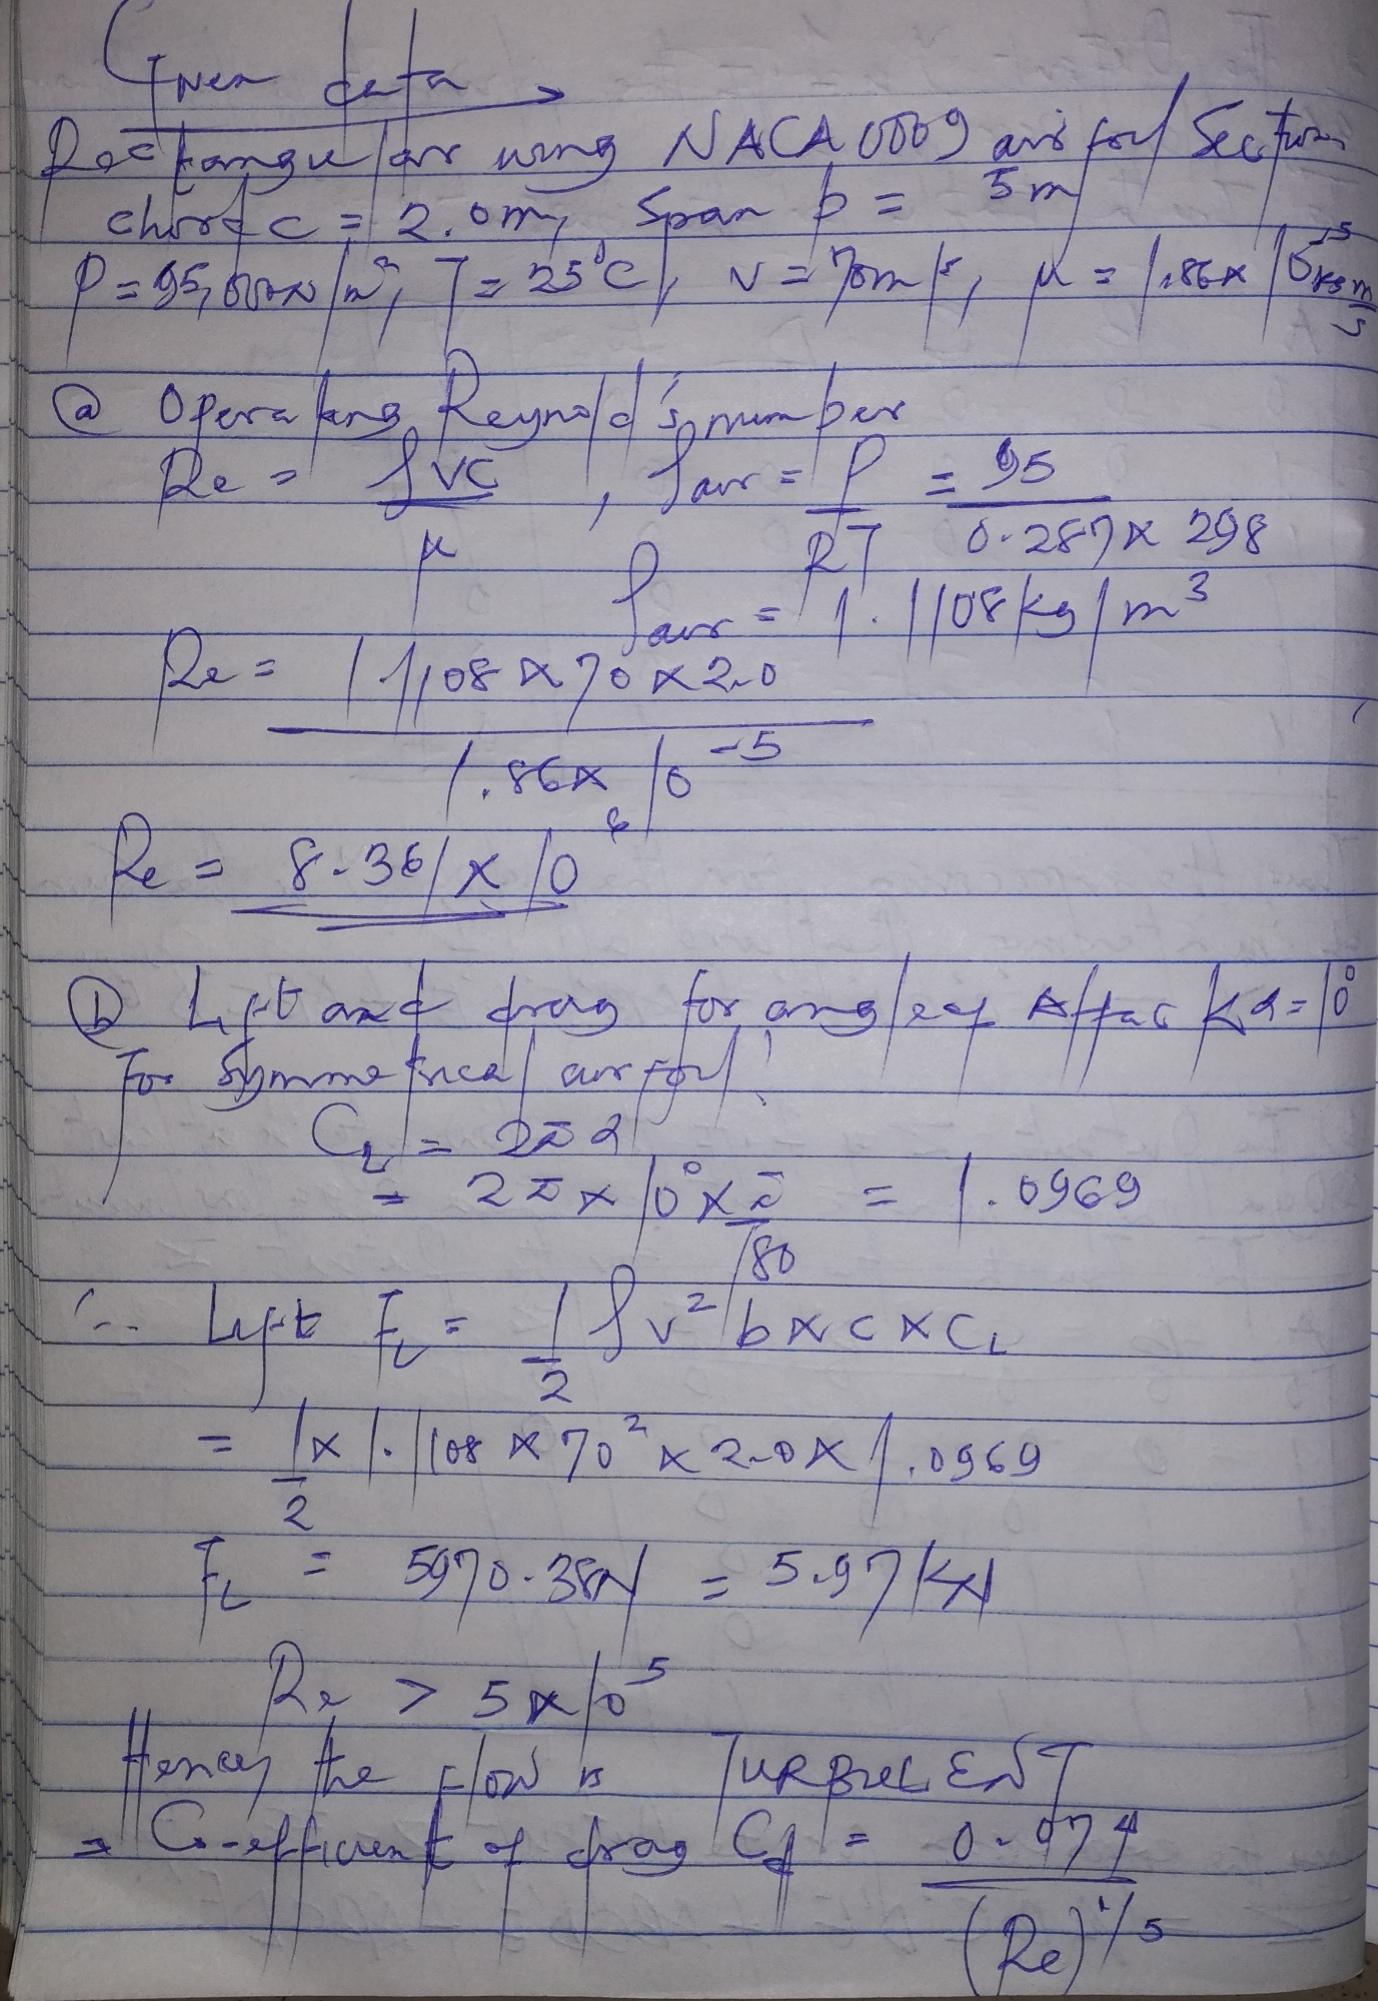 Given data
Rectangular wing NACA 0009 airfoil Section
chord c = 2.0m, Span b = 5m
P = 95,000N/m², T = 25°C, v = 70m/s, μ = 1.86 x 10⁻⁵ kg m/s
(a) Operating Reynold's number
Re = ρVC/μ , ρair = P/RT = 95/(0.287 x 298)
ρair = 1.1108 kg/m³
Re = (1.1108 x 70 x 2.0)/(1.86 x 10⁻⁵)
Re = 8.361 x 10⁶
(b) Lift and drag for angle of Attack α = 10°
For Symmetrical airfoil
CL = 2πα
= 2π x 10° x π/180 = 1.0969
∴ Lift FL = 1/2 ρv² b x c x CL
= 1/2 x 1.1108 x 70² x 2.0 x 1.0969
FL = 5970.38N = 5.97KN
Re > 5 x 10⁵
Hence, the flow is TURBULENT
⇒ Co-efficient of drag Cd = 0.074/(Re)^1/5